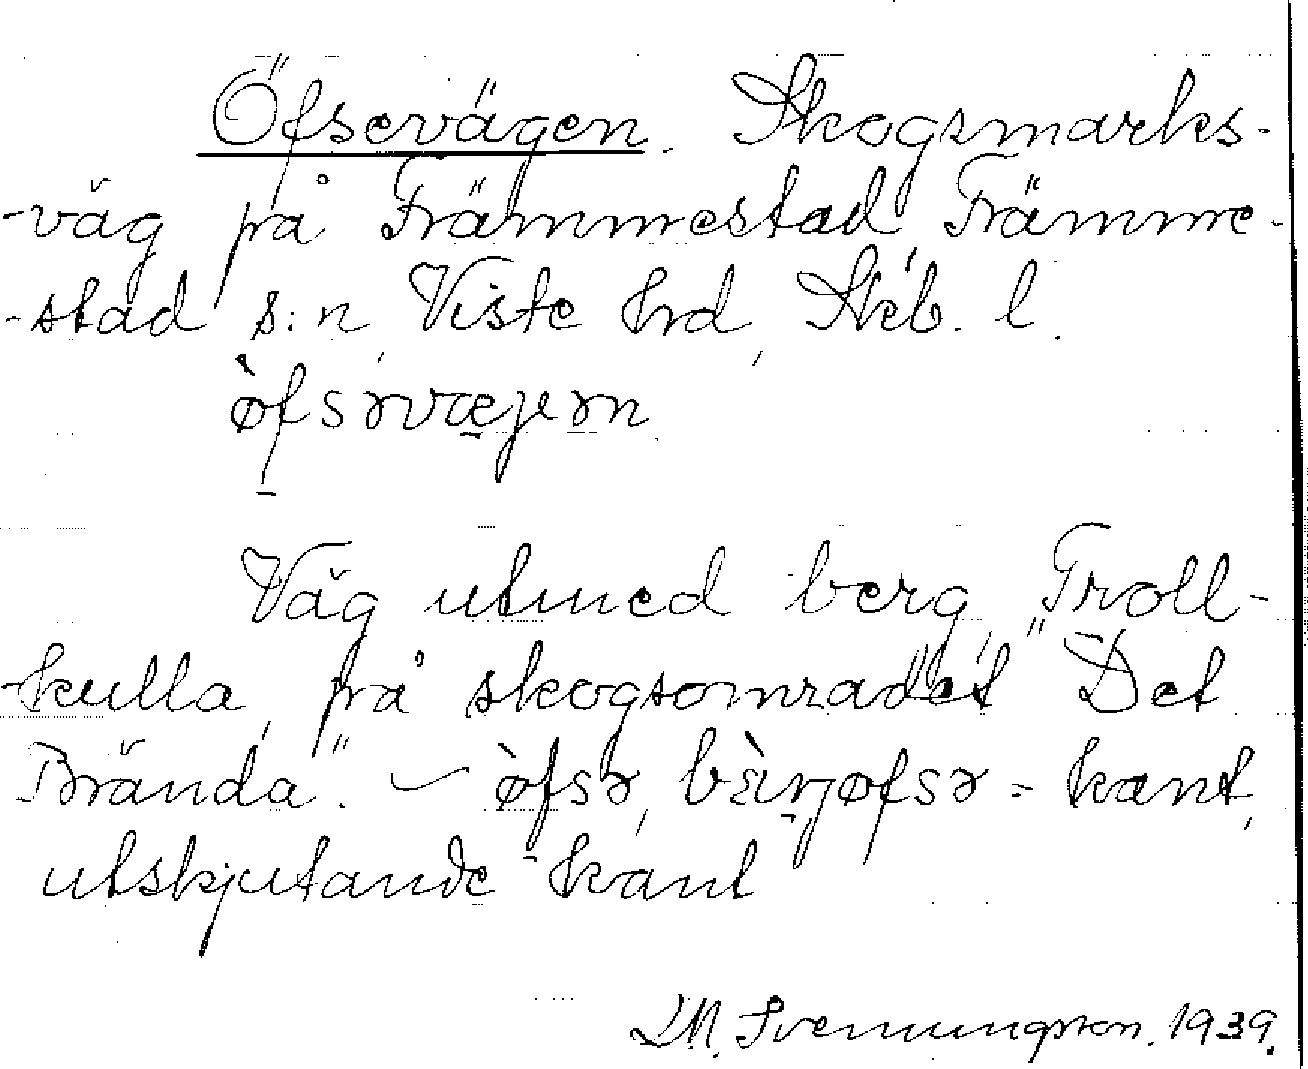 Öfsevägen. Skogsmarks-
-väg på Främmestad, Främme-
-stad s:n, Viste hrd, Skb. l.
òfsəvægən
Väg utmed berg, Troll-
-kulla, på skogsområdet "Det
Brända". – òfsə, bær̀jøfsə = kant,
utskjutande kant
M. Svenungsson. 1939.